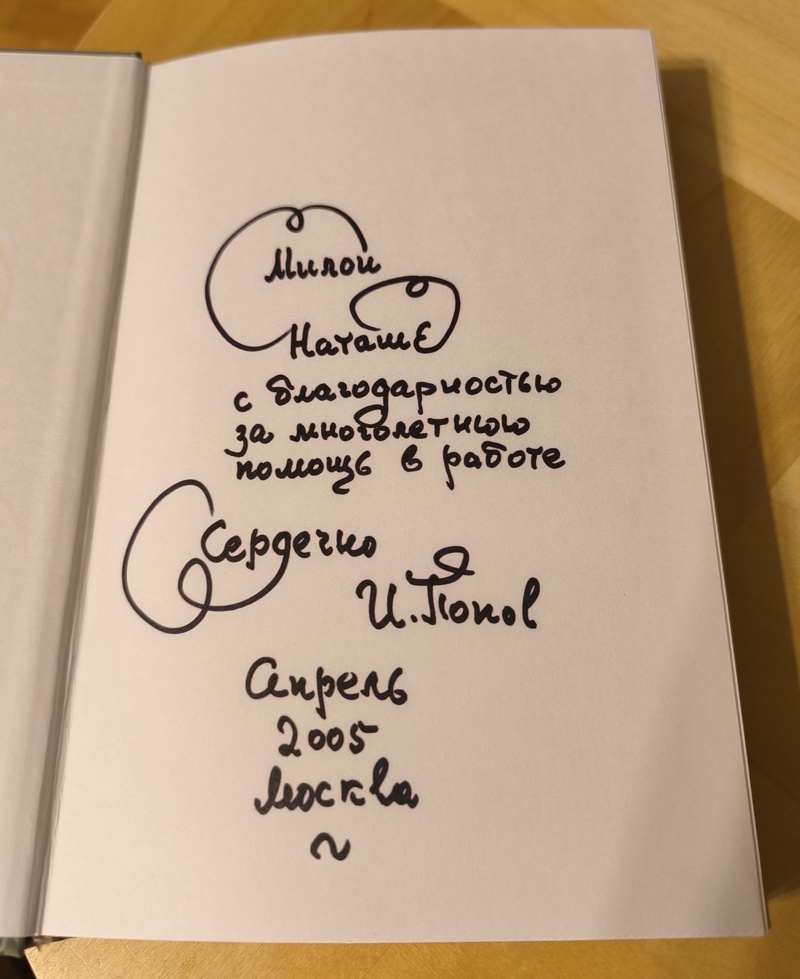 Милой
Наташе
с благодарностью
за многолетнюю
помощь в работе
Сердечно
И. Попов
Апрель
2005
Москва